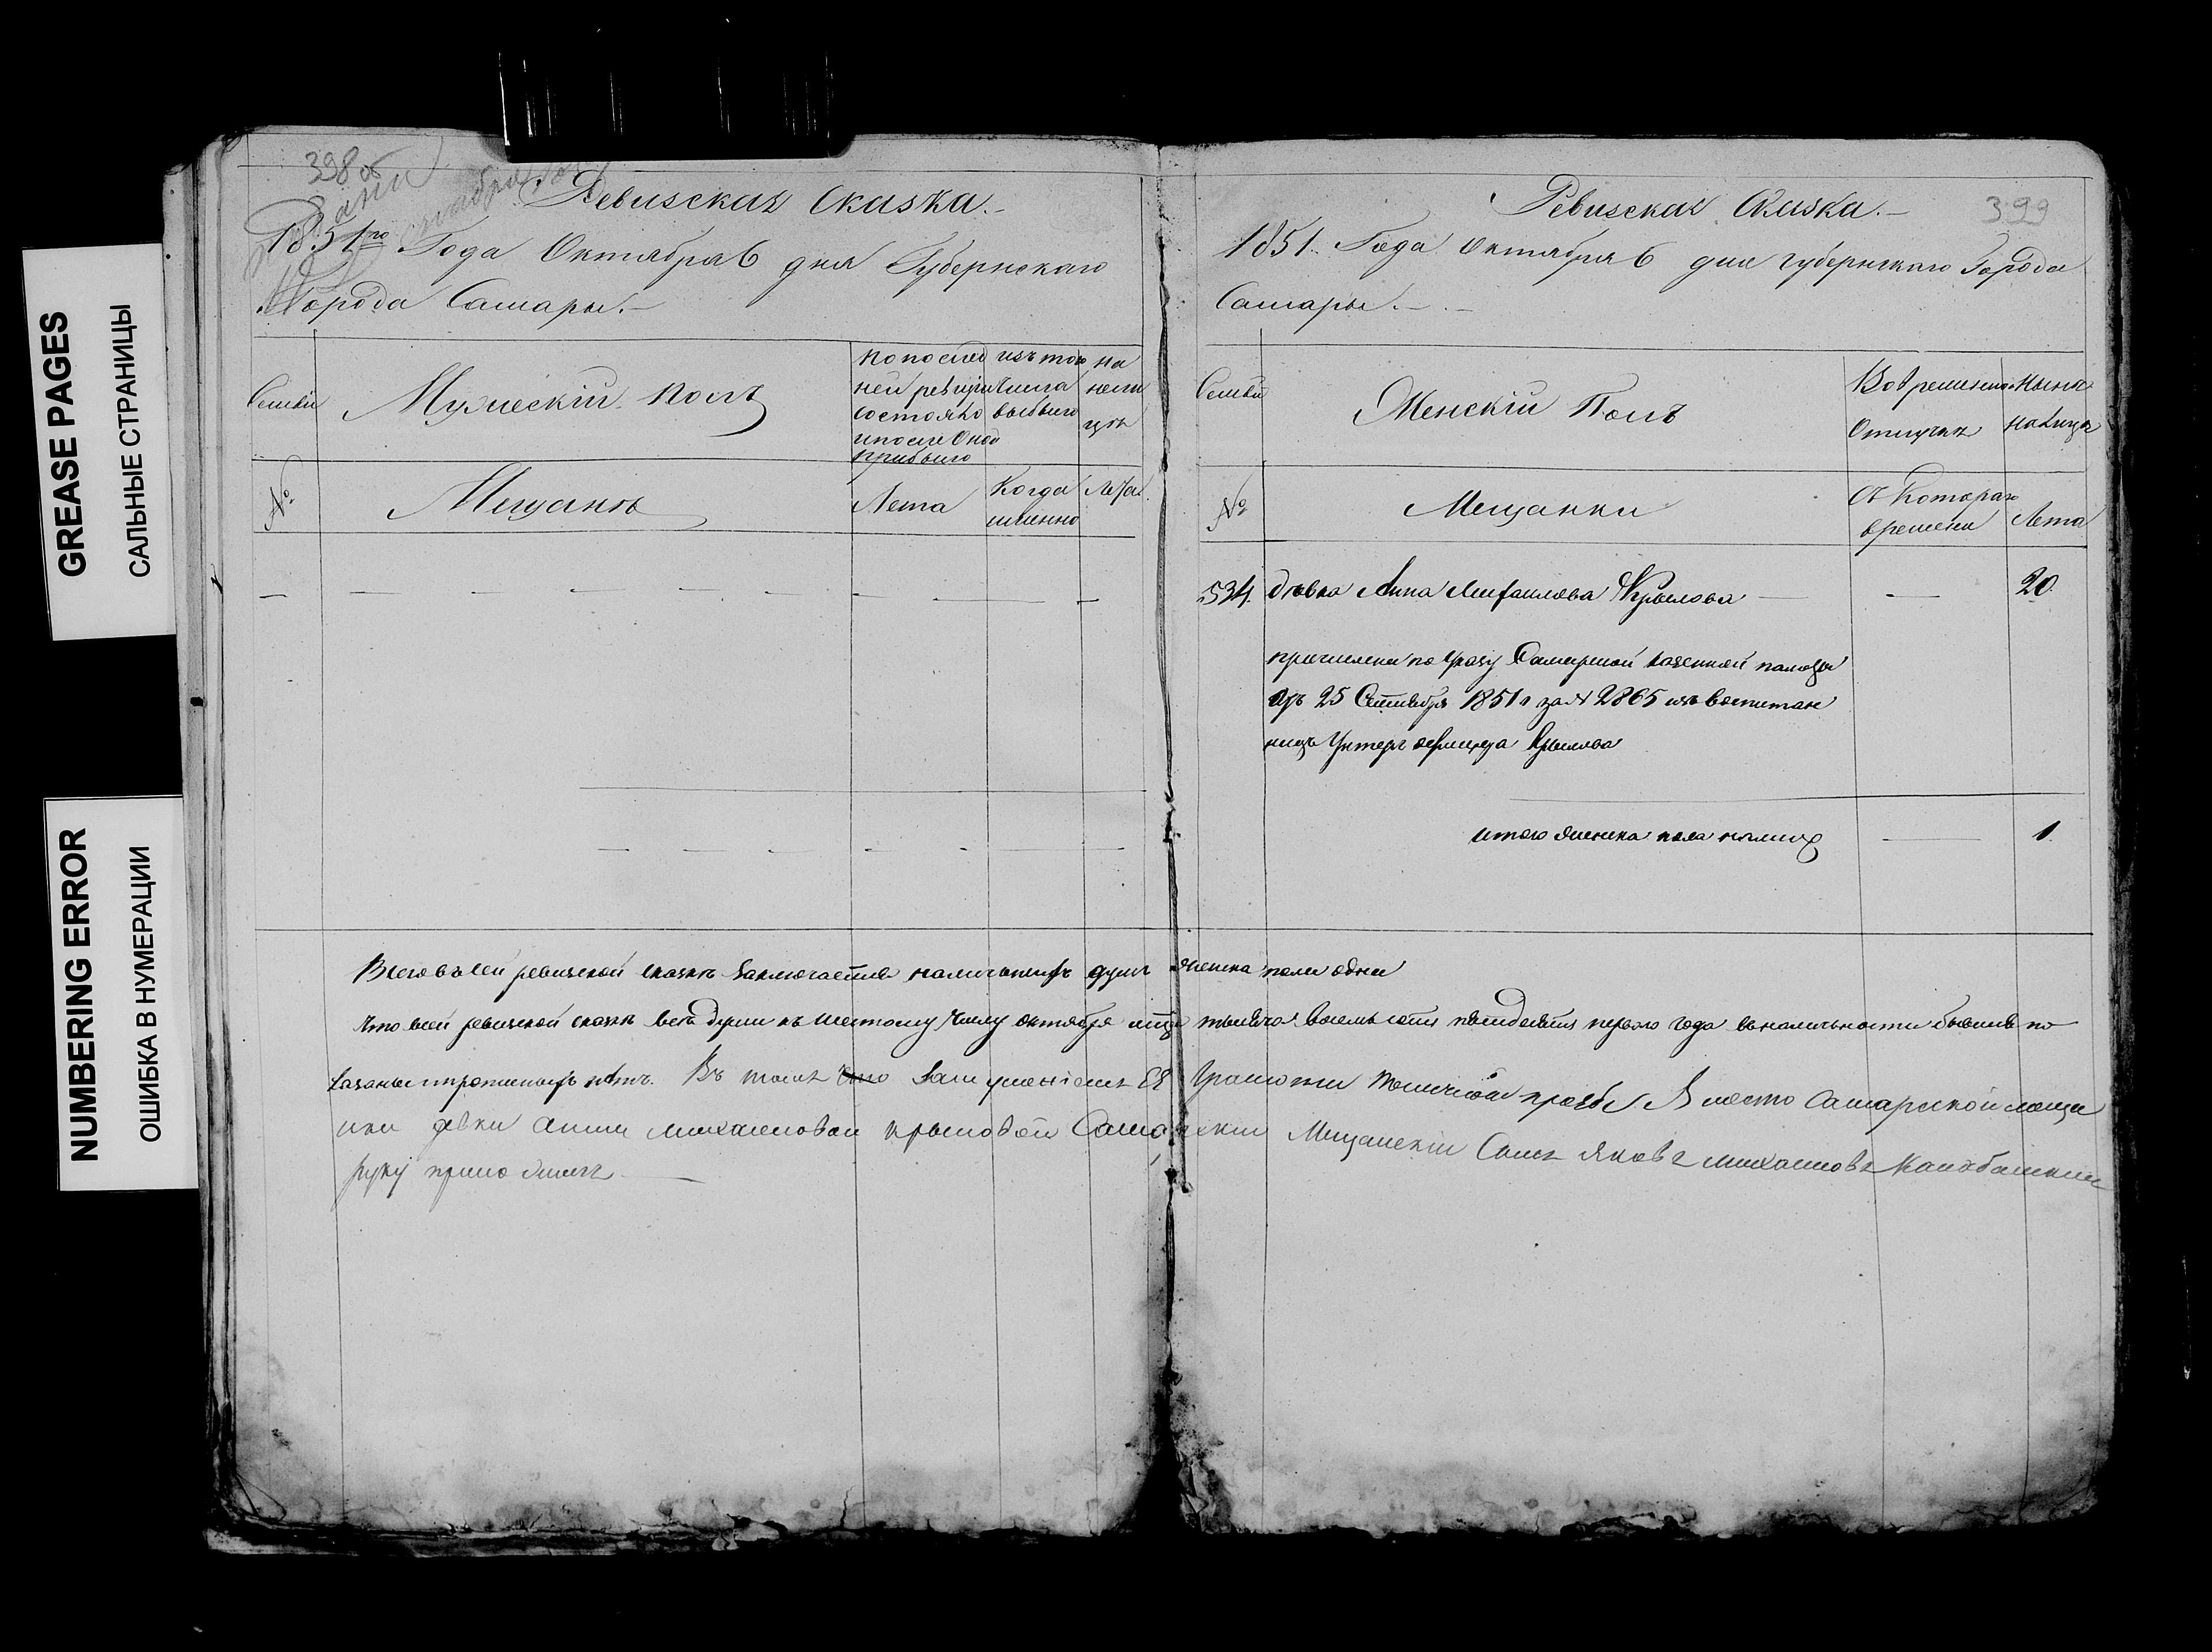 GREASE PAGES
САЛЬНЫЕ СТРАНИЦЫ
NUMBERING ERROR
ОШИБКА В НУМЕРАЦИИ
398 об
Ревизская Сказка.-
1851го Года Октября 6 дня Губернскаго
Города Самары.-
Семьи
Мужескій полъ
По послед
ней ревизіи
состояло
и после Оной
прибыло
изъ того
числа
выбыло
на
нали
цо
№
Мещане
Лета
Когда
именно
Лета
Ревизская Сказка.-
399
1851. Года Октября 6 дня губернскаго Города
Самары.-.-
Семьи
Женскій Полъ
Во временной
Отлучке
Ныне
на Лицо
№
Мещанки
Съ Котораго
времени
Лета
534. девка Анна Михаилова Крылова — — 20.
причислена по Указу Самарской казенной палаты
отъ 25 Сентября 1851 г за № 2865 изъ воспитан
ницъ Унтеръ офицера Крылова
итого женска пола налицо — 1.
Всего въ сей ревизской сказке заключается наличныхъ душъ женска пола одна
Что всей ревизской сказке все души къ шестому числу октября тысяча восемьсотъ пятьдесятъ первого года въ наличности бывшие по
казаны и прописныхъ нетъ. Въ томъ за неуменіемъ Ее Грамоты личной прозбы В место Самарской меща
нки девки Анны михаиловой крыловой Самарскій Мещанскій Сынъ Яковъ михаиловъ
руку приложилъ —